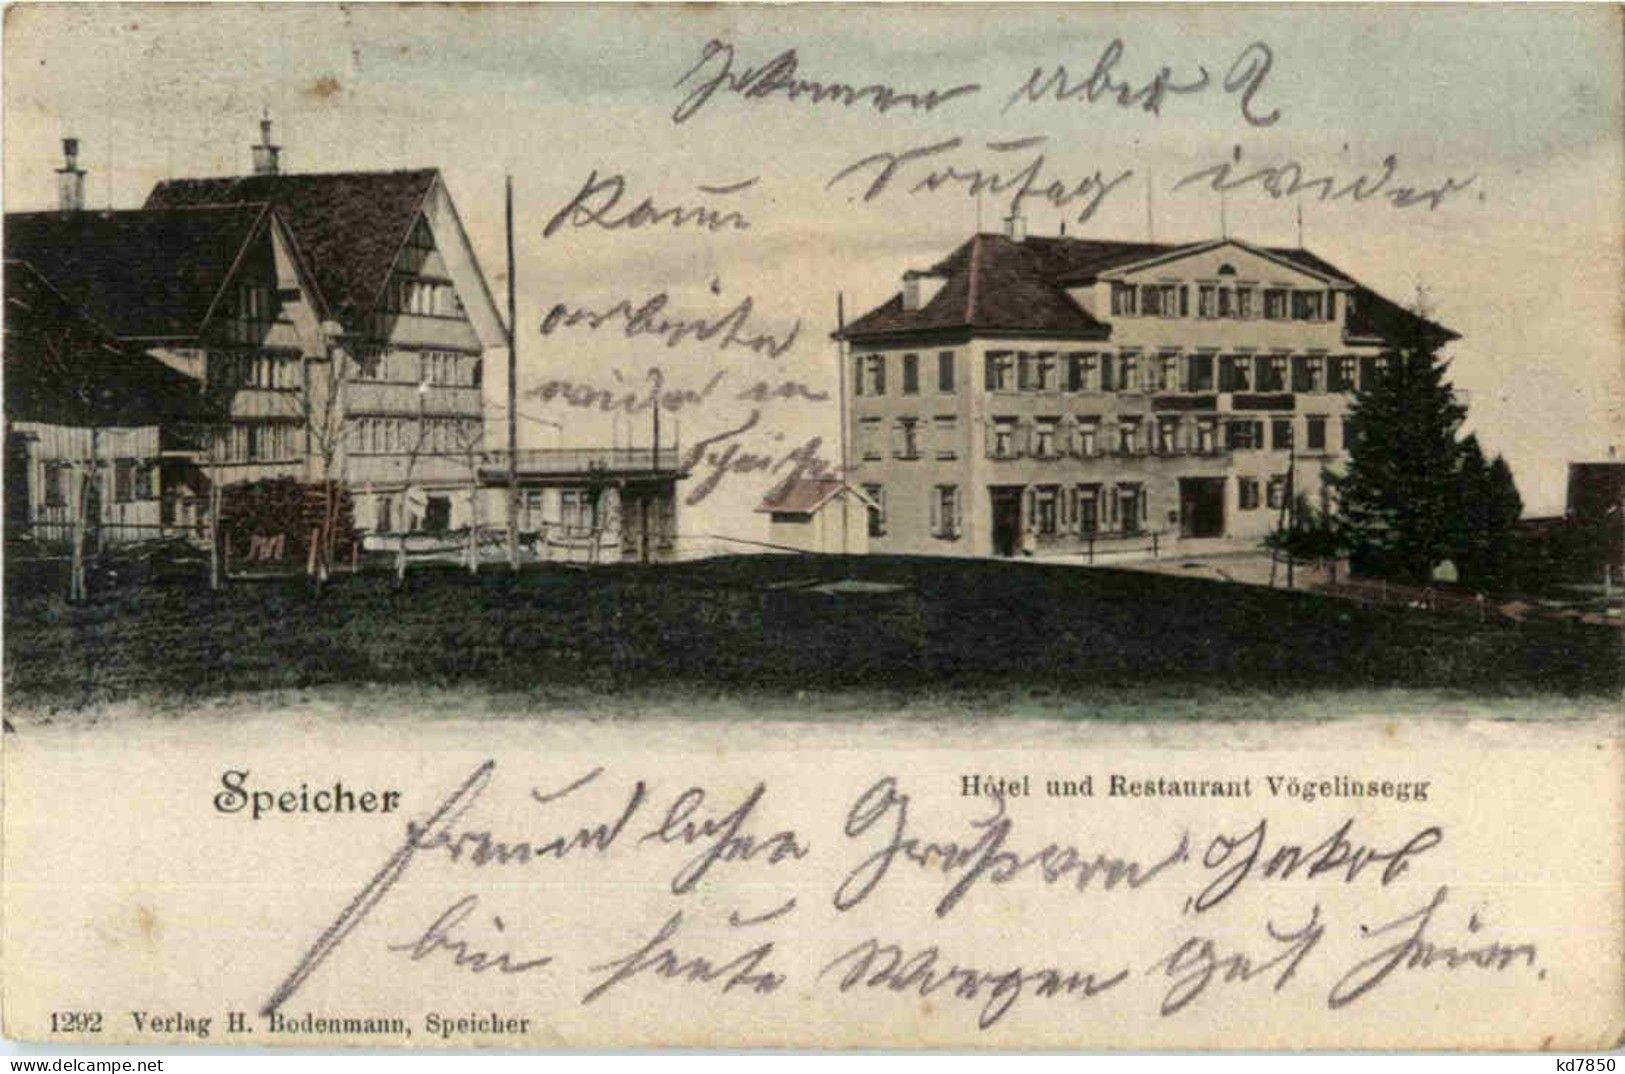 Jekomen aber
Sontag wider.
Kaum
arbeite
wider in
Speicher
Hôtel und Restaurant Vögelinsegg
Freundlichen Gruss von Jakob
bin heute Morgen gut heim
1292 Verlag H. Bodenmann, Speicher
kd7850